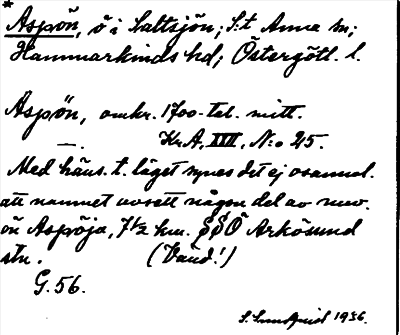 *
Aspön, ö i Saltsjön; S:t Anna sn;
Hammarkinds hd; Östergötl. l.
Aspön, omkr. 1700-tal. mitt.
—. Kr.A. XIII, N:o 25.
Med häns. t. läget synes det ej osannol.
att namnet avsett någon del av nuv.
ön Aspöja, 7½ km. SSO Arkösund
stn. (Vänd!)
G. 56.
S. Lundqvist 1936.